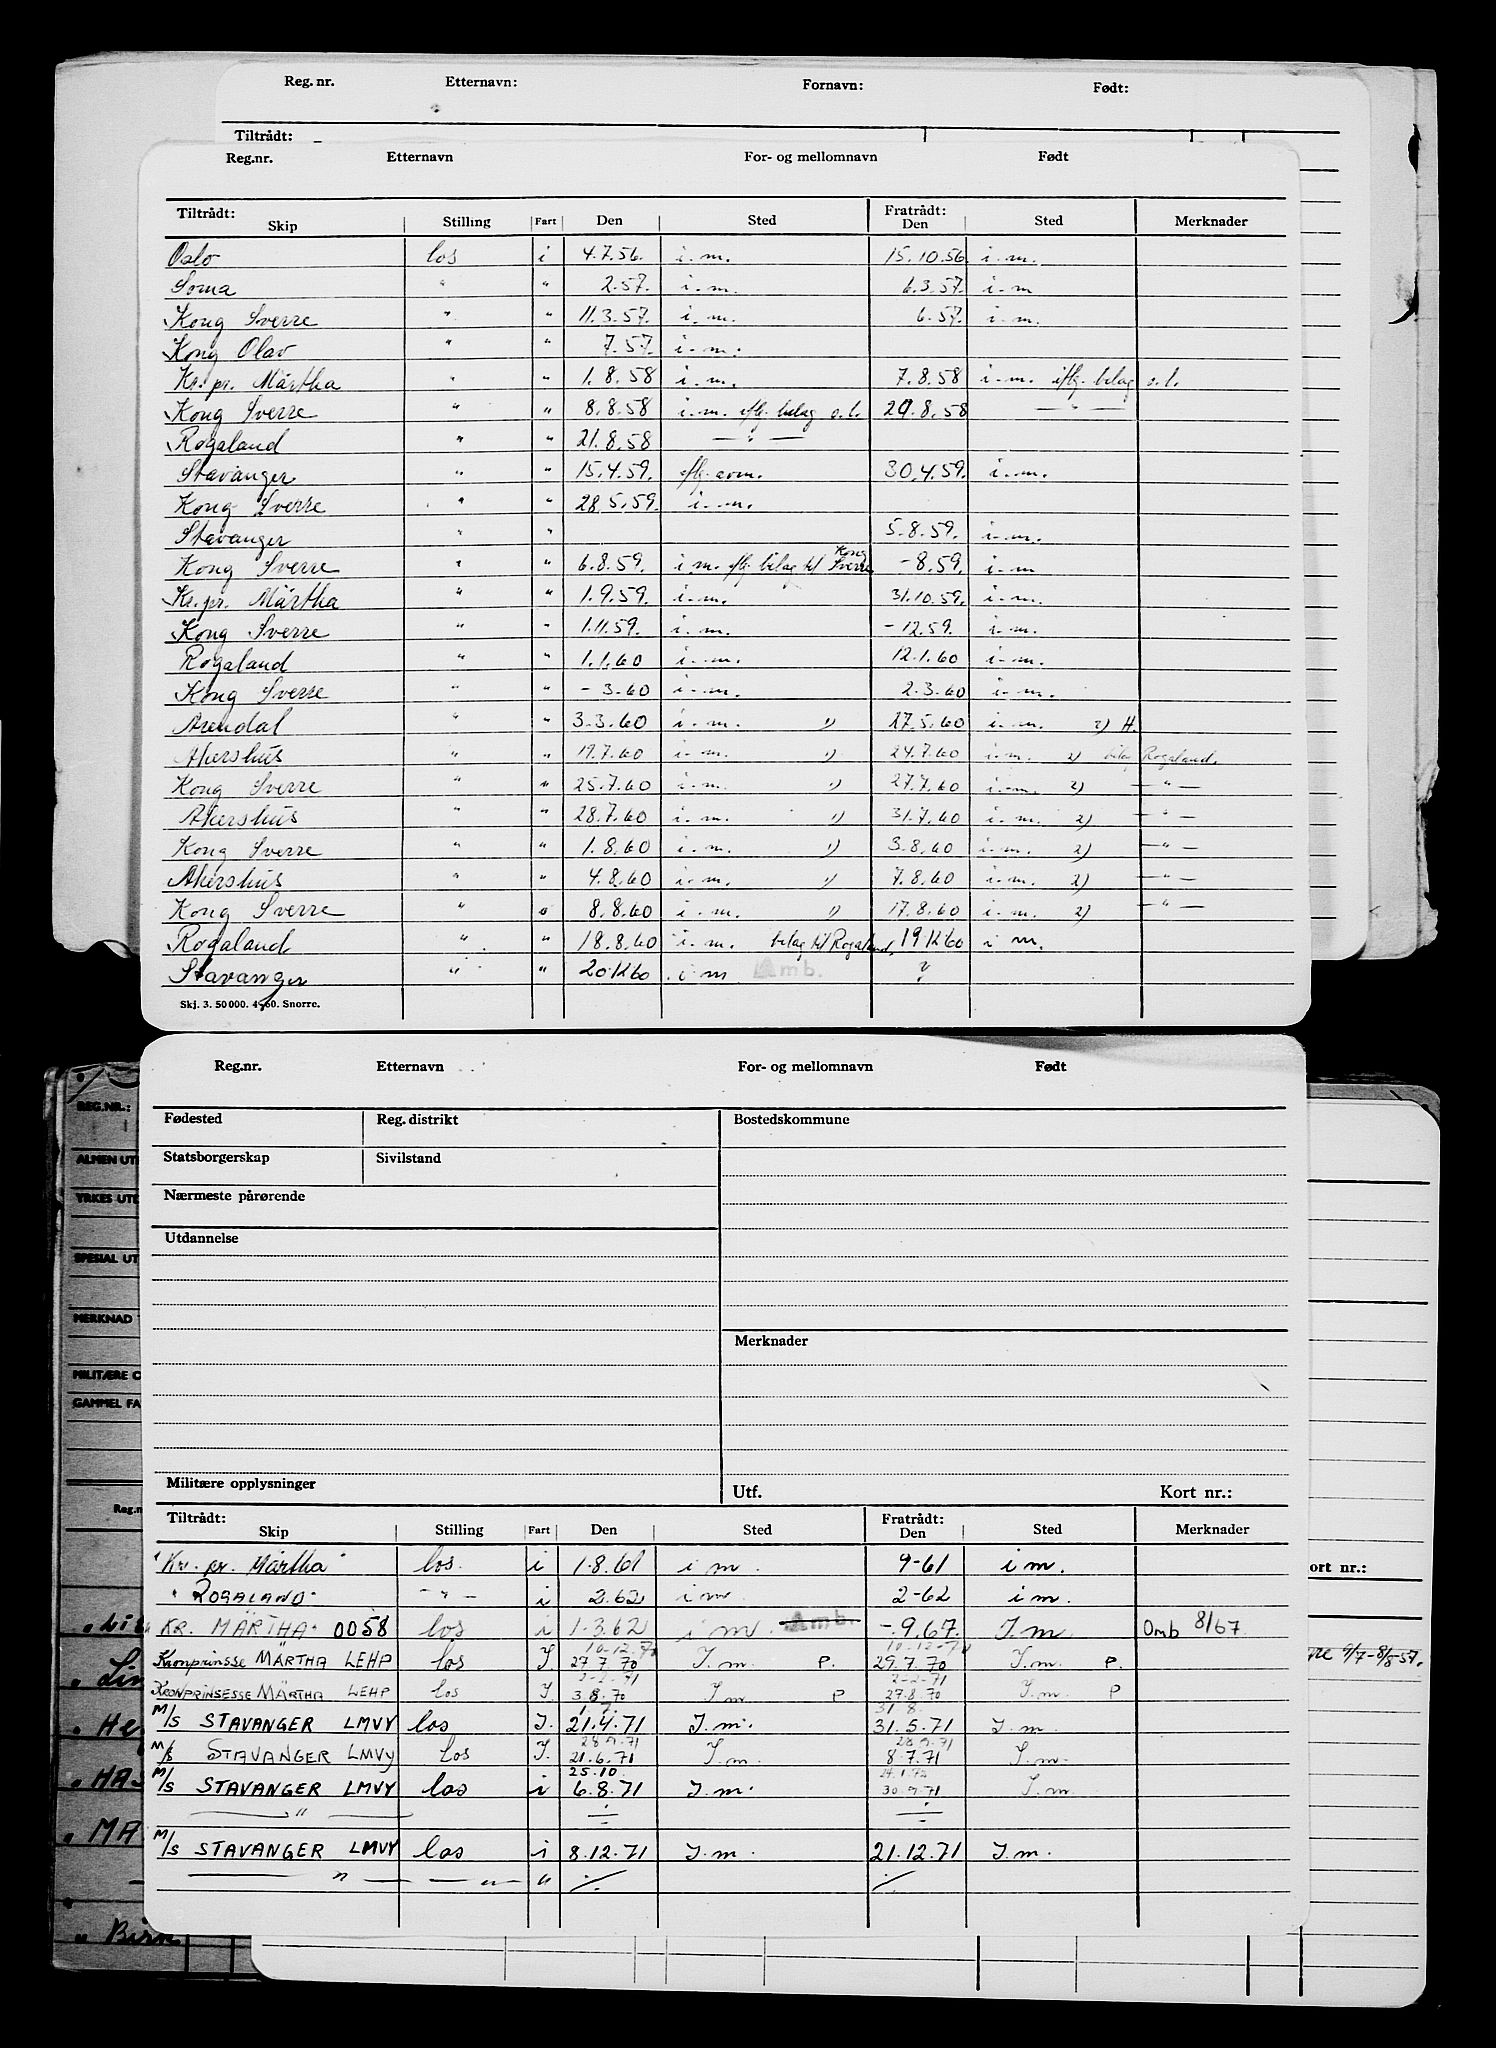 Reg. nr. Etternavn: Fornavn: Født:
Tiltrådt:
Reg.nr. Etternavn For- og mellomnavn Født
Tiltrådt: Fratrådt:
Skip Stilling Fart Den Sted Den Sted Merknader
Oslo los i 4.7.56. i.m. 15.10.56. i.m.
Soma " " 2.57. i.m. 6.3.57. i.m
Kong Sverre " " 11.3.57. i.m. 6.57. i.m.
Kong Olav " " 7.57. i.m.
Kr. pr. Märtha " " 1.8.58 i.m. 7.8.58 i.m. iflg. bilag o.l.
Kong Sverre " " 8.8.58 i.m. iflg. bilag o.l. 20.8.58 — " —
Rogaland " " 21.8.58 — " —
Stavanger " " 15.4.59. iflg. avm. 30.4.59. i.m.
Kong Sverre " " 28.5.59. i.m.
Stavanger " " 5.8.59. i.m.
Kong Sverre " " 6.8.59. i m. iflg. bilag til Kong Sverre -8.59. i.m
Kr. pr. Märtha " " 1.9.59. i.m. 31.10.59. i.m.
Kong Sverre " " 1.11.59. i.m. -12.59. i.m.
Rogaland " " 1.1.60 i.m. 12.1.60 i.m.
Kong Sverre " " -3.60 i.m. 2.3.60 i.m.
Arendal " " 3.3.60 i.m. 1) 27.5.60 i.m. 2) H.
Akershus " " 19.7.60 i.m. 1) 24.7.60 i.m. 2) bilag Rogaland.
Kong Sverre " " 25.7.60 i.m. 1) 27.7.60 i.m. 2) — " —
Akershus " " 28.7.60 i.m. 1) 31.7.60 i.m. 2) — " —
Kong Sverre " " 1.8.60 i.m. 1) 3.8.60 i.m. 2) — " —
Akershus " " 4.8.60 i.m. 1) 7.8.60 i.m. 2) — " —
Kong Sverre " " 8.8.60 i.m. 1) 17.8.60 i.m. 2) — " —
Rogaland " " 18.8.60 i.m. bilag til Rogaland. 19.12.60 i m.
Stavanger " " 20.12.60 i m Amb. ?
Skj. 3. 50 000. 4-60. Snorre.
Reg.nr. Etternavn For- og mellomnavn Født
REG.NR.:
Fødested Reg. distrikt Bostedskommune
ALMEN UT
Statsborgerskap Sivilstand
YRKES UTD
Nærmeste pårørende
Utdannelse
SPESIAL UT
MERKNAD
Merknader
MILITÆRE O
GAMMEL FA
Militære opplysninger Utf. Kort nr.:
Reg.n
Tiltrådt: Fratrådt:
Skip Stilling Fart Den Sted Den Sted Merknader
"Kr. pr. Märtha" los. i 1-8.61 i m. 9-61 i m.
ort nr.:
"ROGALAND" — " — i 2.62 i m 2-62 i m.
KR. MÄRTHA" 0058 los i 1-3.62 i m. Amb. -.9.67. I.m Omb 8/67
10-12-70 10-12-70
Kronprinsse MÄRTHA LEHP los I. 27.7.70 I.m. P. 29.7.70 I.m. P.
2-2-71 2-2-71
KRONPRINSESSE MÄRTHA LEHP los I. 3.8.70 I.m P 27.8.70 I.m. P
1.7. 31.8.
M/S STAVANGER LMVY los I. 21.4.71 I.m. 31.5.71 I.m.
28.9.71 28.9.71
M/s STAVANGER LMVY los I. 21.6.71 I.m. 8.7.71 I.m.
25.10. 24.1.72
M/S STAVANGER LMVY los i 6.8.71 I.m. 30.9.71 I.m.
— " —
M/S STAVANGER LMVY los i 8.12.71 I.m. 21.12.71 I.m.
— " — — " — "
Lin
He
HAS
MA
" Birk
9/7-8/8-57.